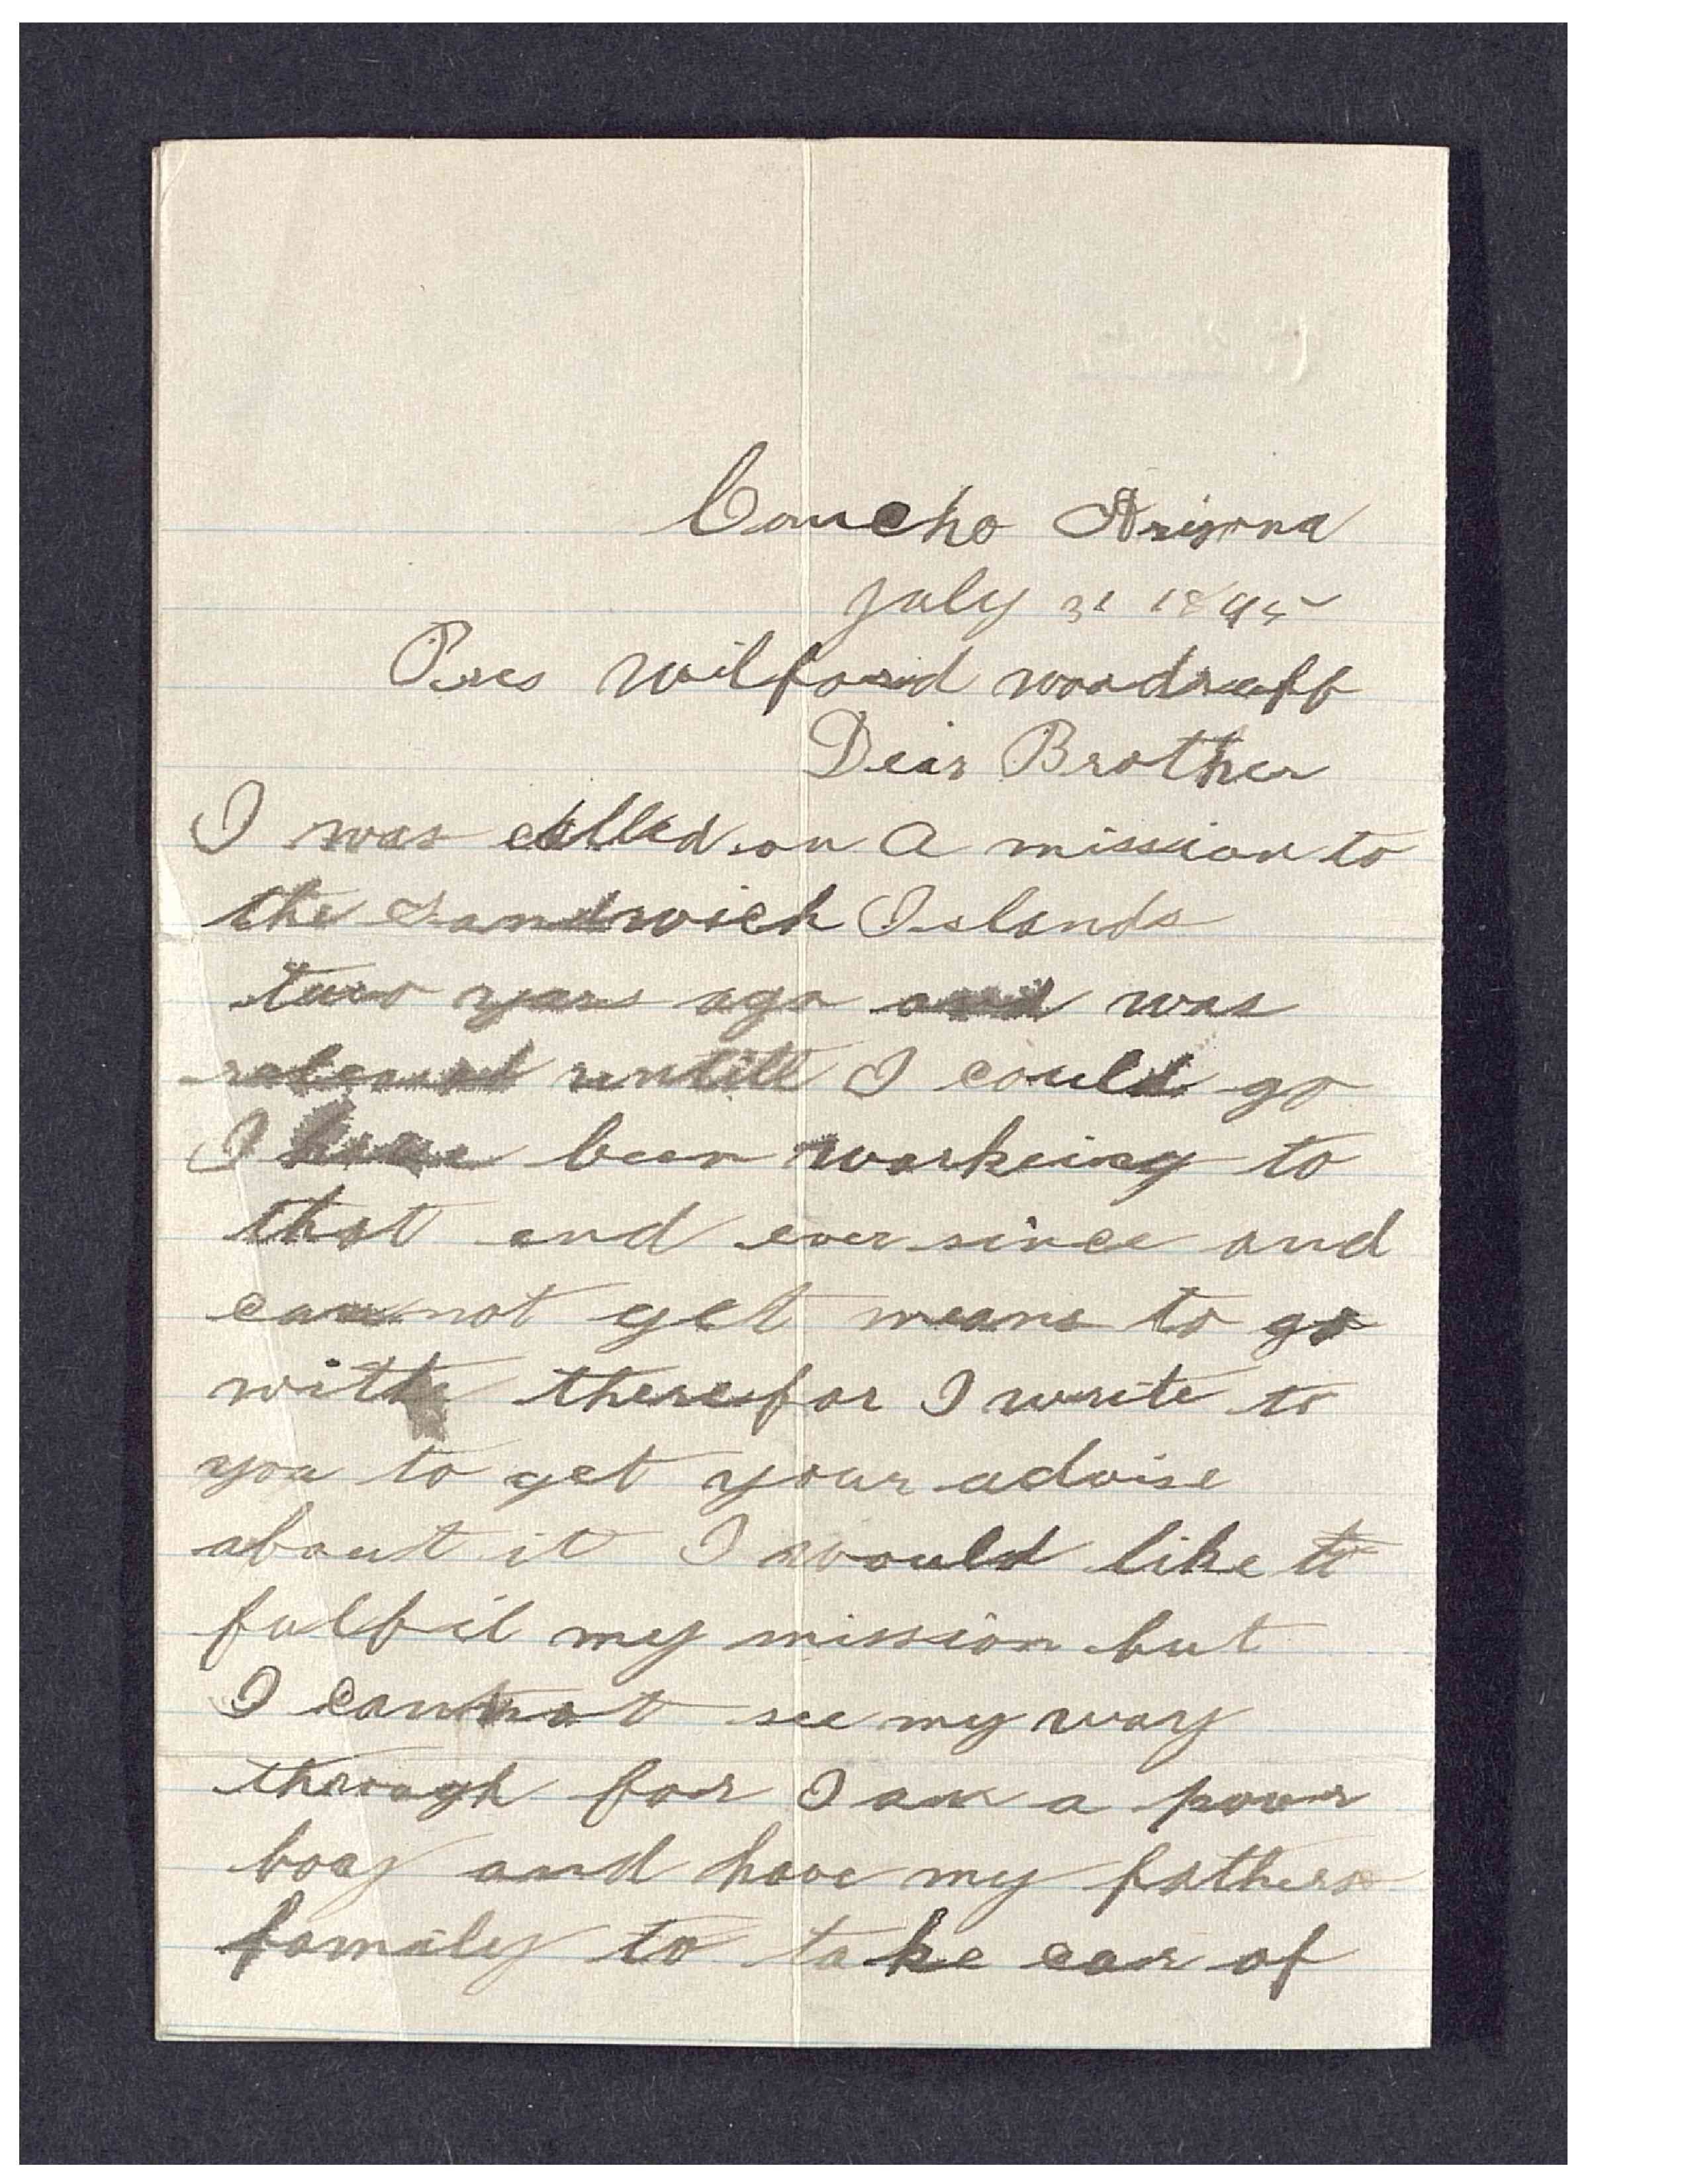 Concho Arizona
July 31 1895
Pres Wilford woodruff
Dear Brother
I was called on A mission to
the Sandwich Islands
two years ago and was
untill I could go
I have been working to
that end ever since and
cannot get means to go
with therefor I write to
you to get your advise
about it I would like to
fulfil my mission but
I cannot see my way
through for I am a poor
boay and have my fathers
family to take car of